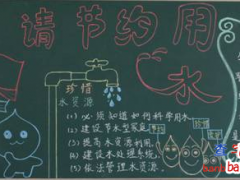 请节约用
水
珍惜
水资源
(1) 必须知道如何科学用水
(2) 建设节水型家庭
(3) 提高水资源利用
(4) 建设水处理系统
(5) 依法管理水资源